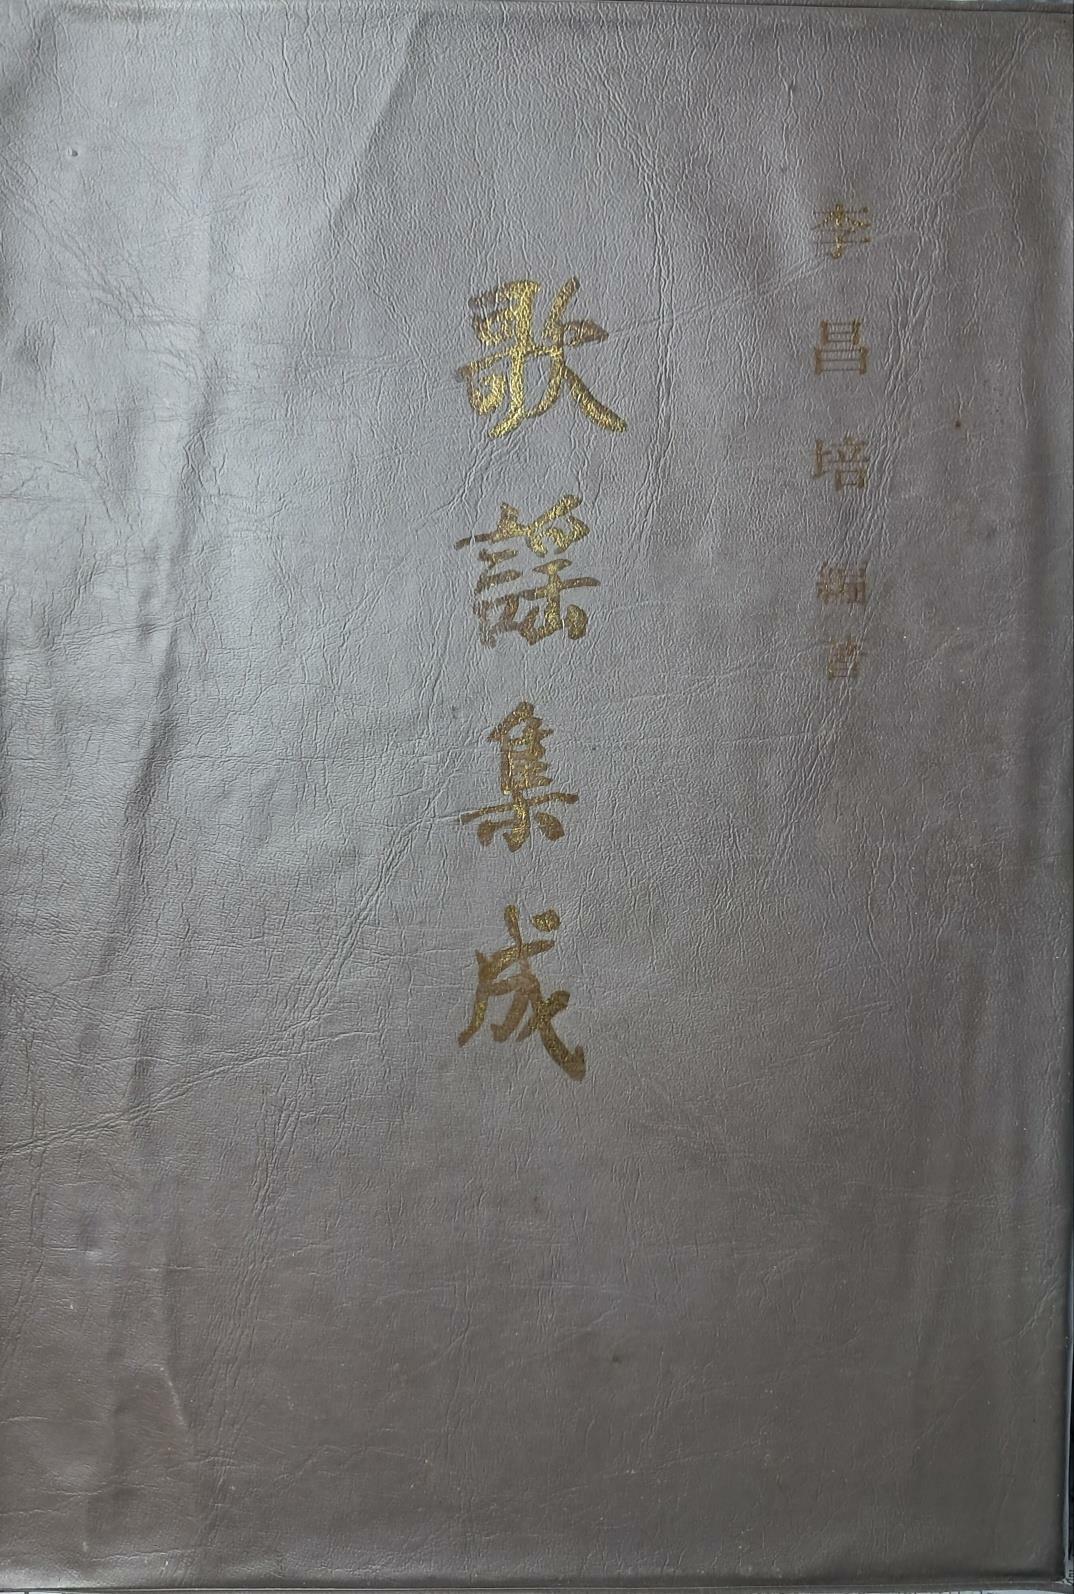 李昌培編著
歌謠集成